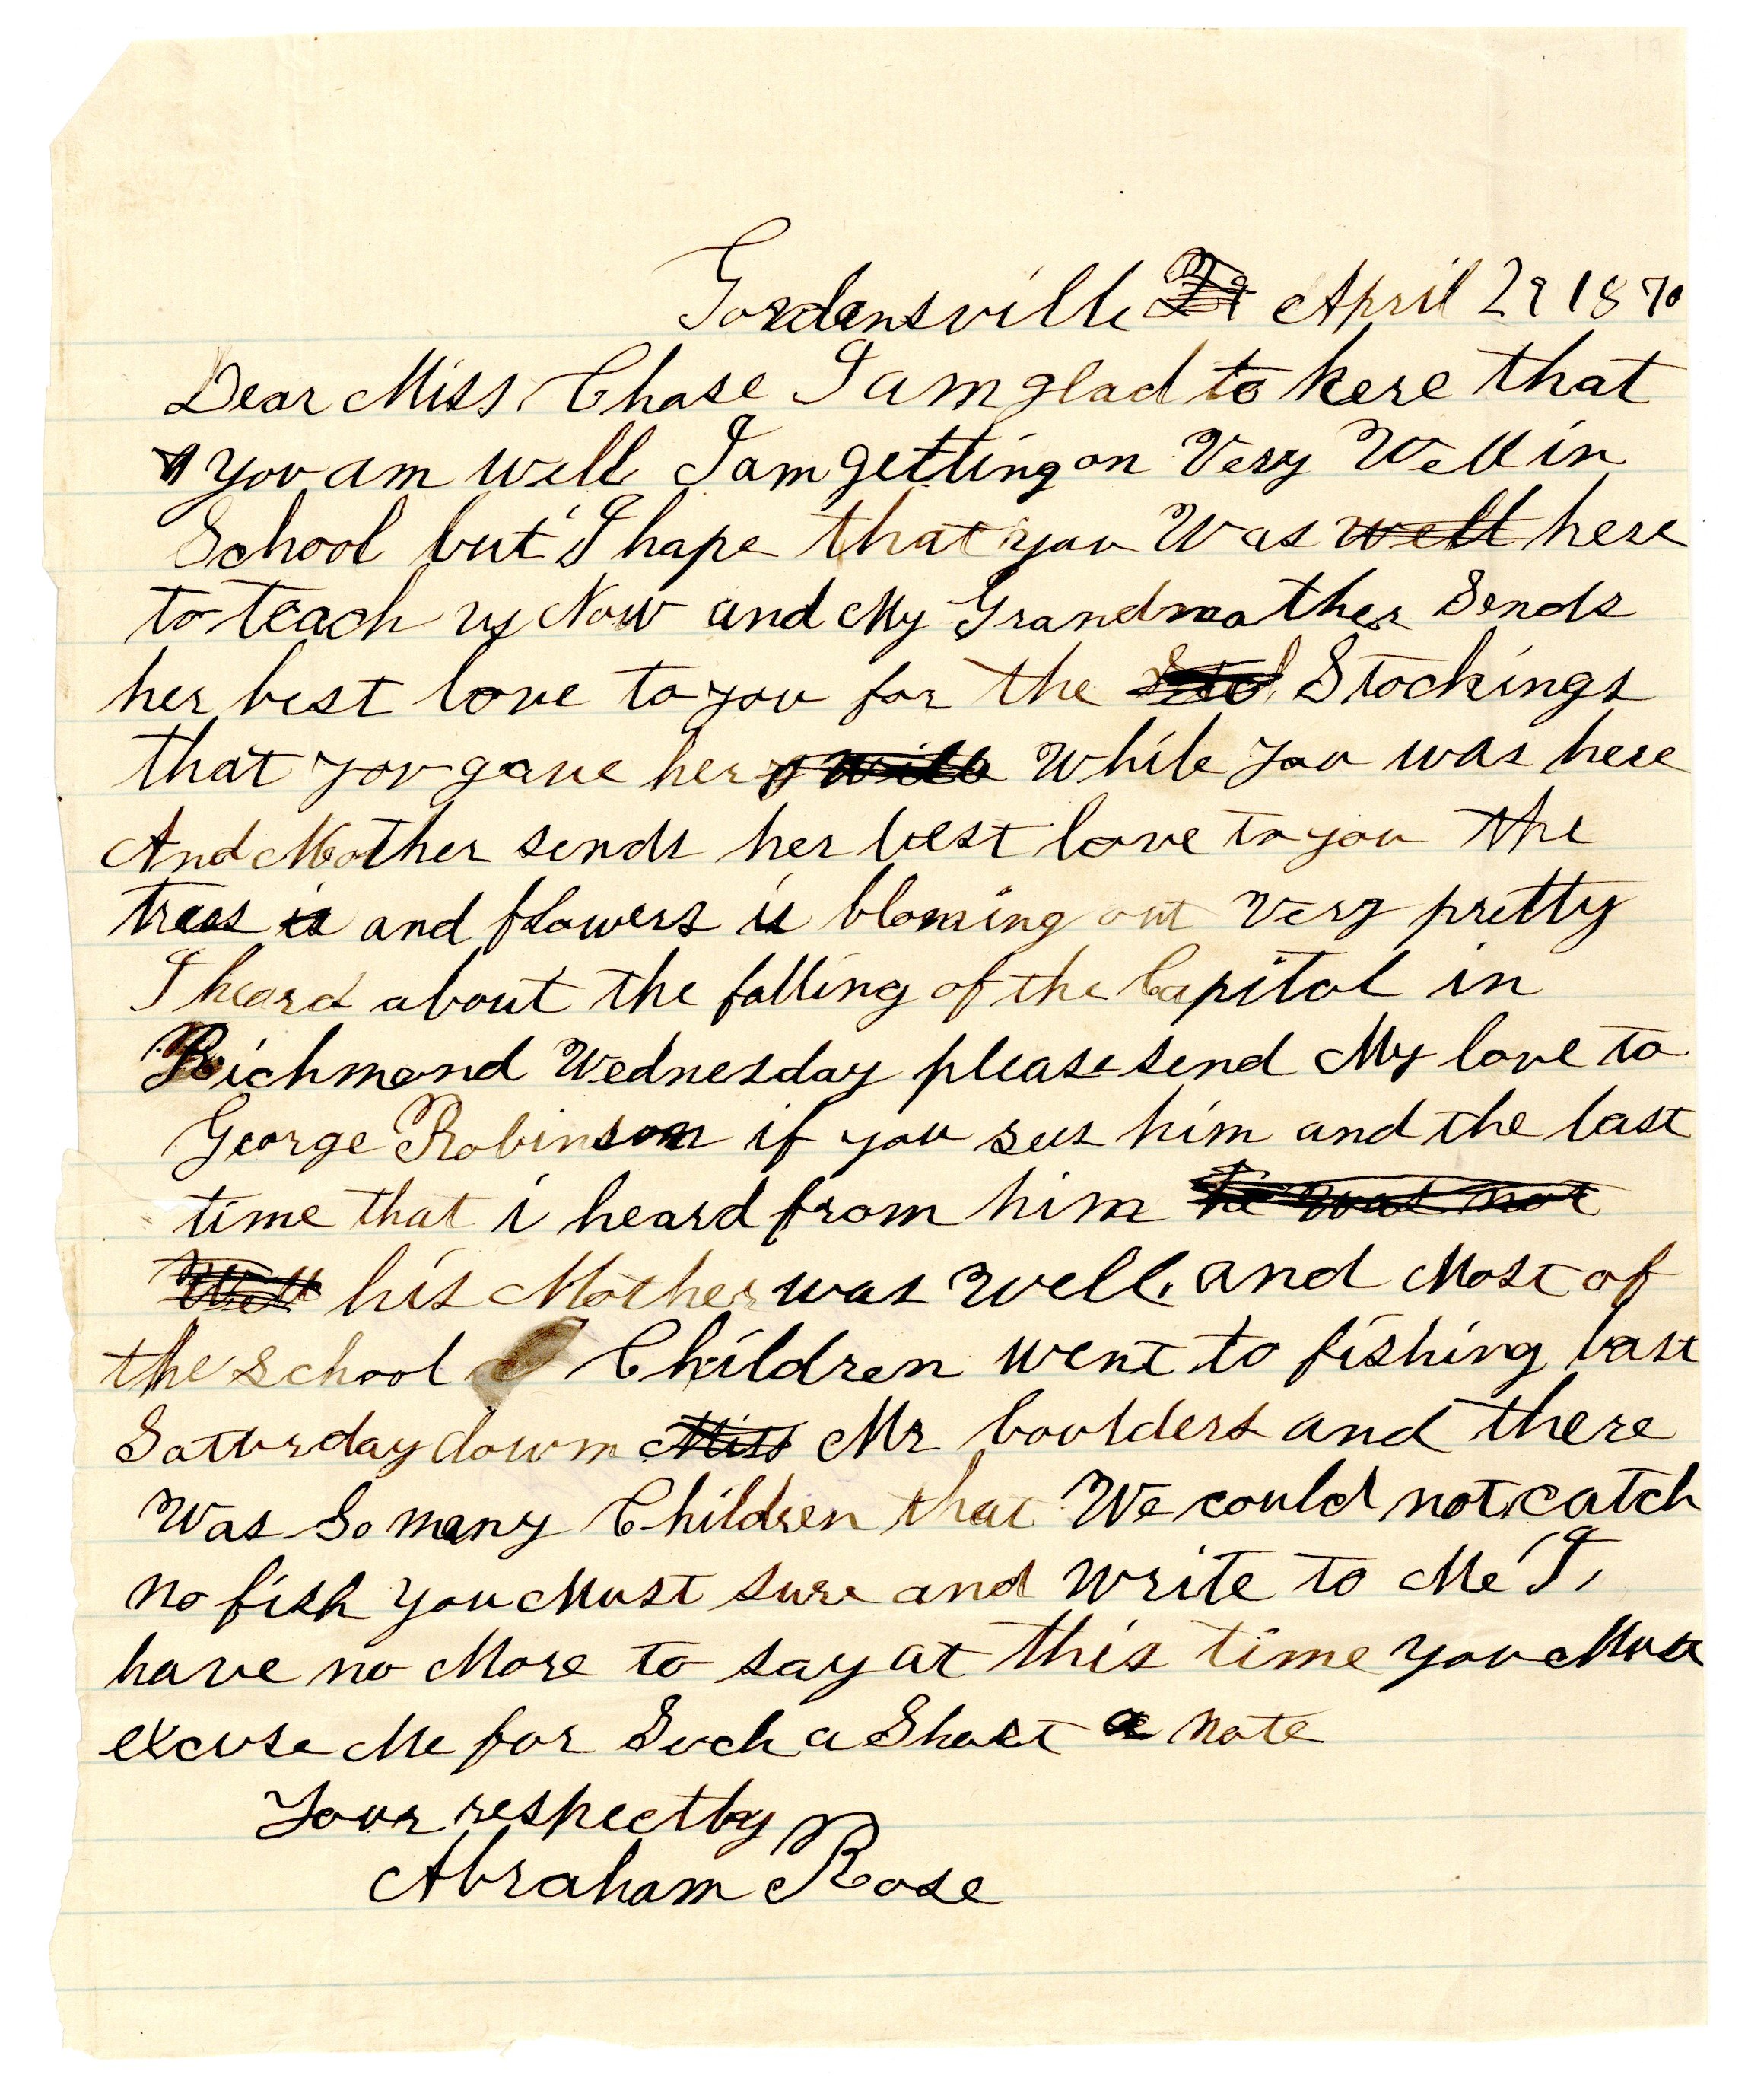 Gordansville April 29 1870
Dear Miss Chase I am glad to here that
you am well I am getting on Very Well in
School but I hope that you Was well here
to teach us Now and My Grandmother Sends
her best love to you for the Stockings
that you gave her While you was here
And Mother sends her best love to you the
trees is and flowers is blowing out very pretty
I heard about the falling of the Capitol in
Richmond Wednesday please send My love to
George Robinson if you sees him and the last
time that i heard from him he was not
Well his Mother was well. and Most of
the school Children went to fishing last
Saturday down Miss Mr boulders and there
Was So many Children that We could not catch
no fish you Must sure and write to Me I,
have no More to say at this time you Must
excuse Me for Such a Short a note
Your respectby
Abraham Rose